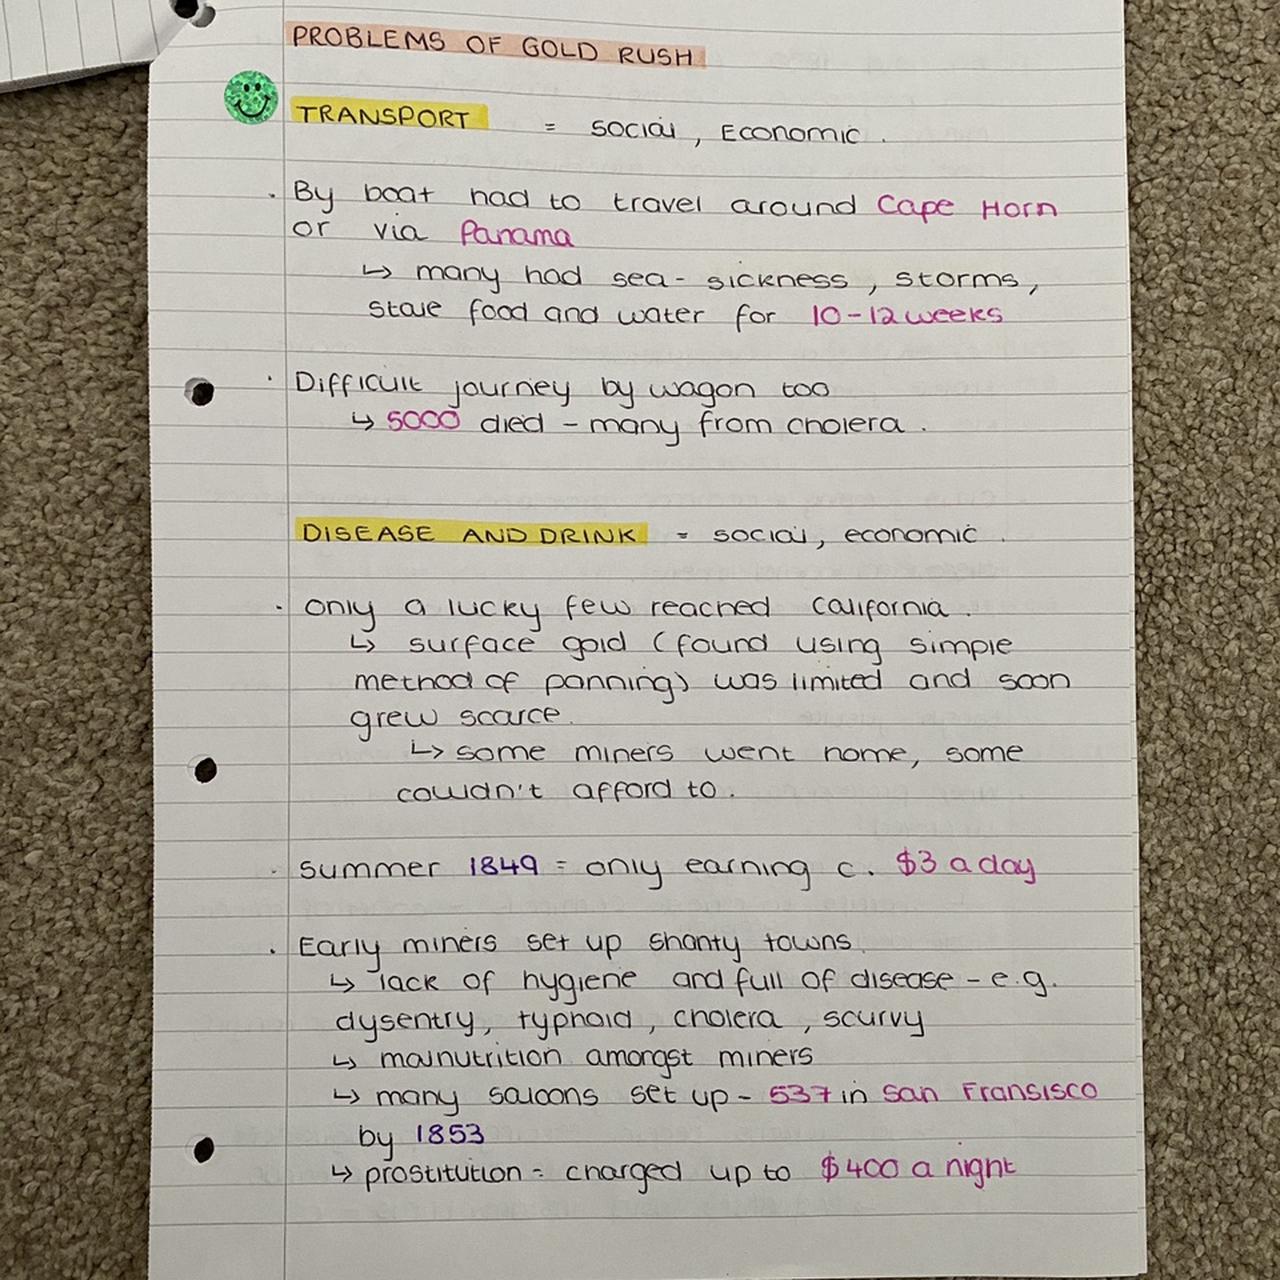 PROBLEMS OF GOLD RUSH
TRANSPORT = social, Economic.
· By boat had to travel around Cape Horn
or via Panama
↳ many had sea-sickness, storms,
stale food and water for 10-12 weeks
· Difficult journey by wagon too
↳ 5000 died - many from cholera.
DISEASE AND DRINK = social, economic.
· only a lucky few reached California.
↳ surface gold (found using simple
method of panning) was limited and soon
grew scarce.
↳ some miners went home, some
couldn't afford to.
· summer 1849 = only earning c. $3 a day
· Early miners set up shanty towns.
↳ lack of hygiene and full of disease - e.g.
dysentry, typhoid, cholera, scurvy
↳ malnutrition amongst miners
↳ many saloons set up - 537 in San Fransisco
by 1853
↳ prostitution = charged up to $400 a night